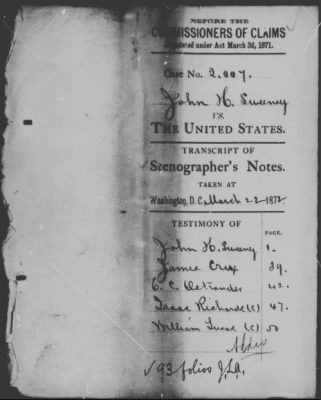 BEFORE THE
COMMISSIONERS OF CLAIMS
Appointed under Act March 3d, 1871.
Case No. 2,007.
John H. Sweny
VS.
THE UNITED STATES.
TRANSCRIPT OF
Stenographer's Notes.
TAKEN AT
Washington, D. C., March 22 1872.
TESTIMONY OF
PAGE.
John H. Sweny 1.
James Crux 39.
C. C. Ostrander 42.
Isaac Richards (c) 47.
William (c) 50
√ 93 folios